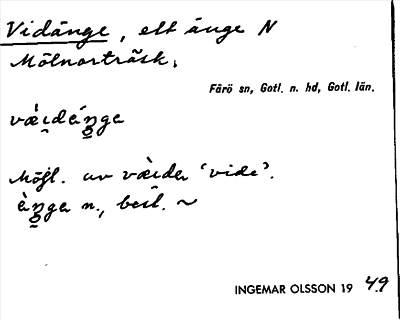 Vidänge, ett änge N
Mölnorträsk.
Fårö sn, Gotl. n. hd, Gotl. län.
væ̀i̯dei̯ŋ̲ge
Möjl. av væ̀i̯der 'vide'.
ei̯ŋ̲ge n., best. ~
INGEMAR OLSSON 19 49